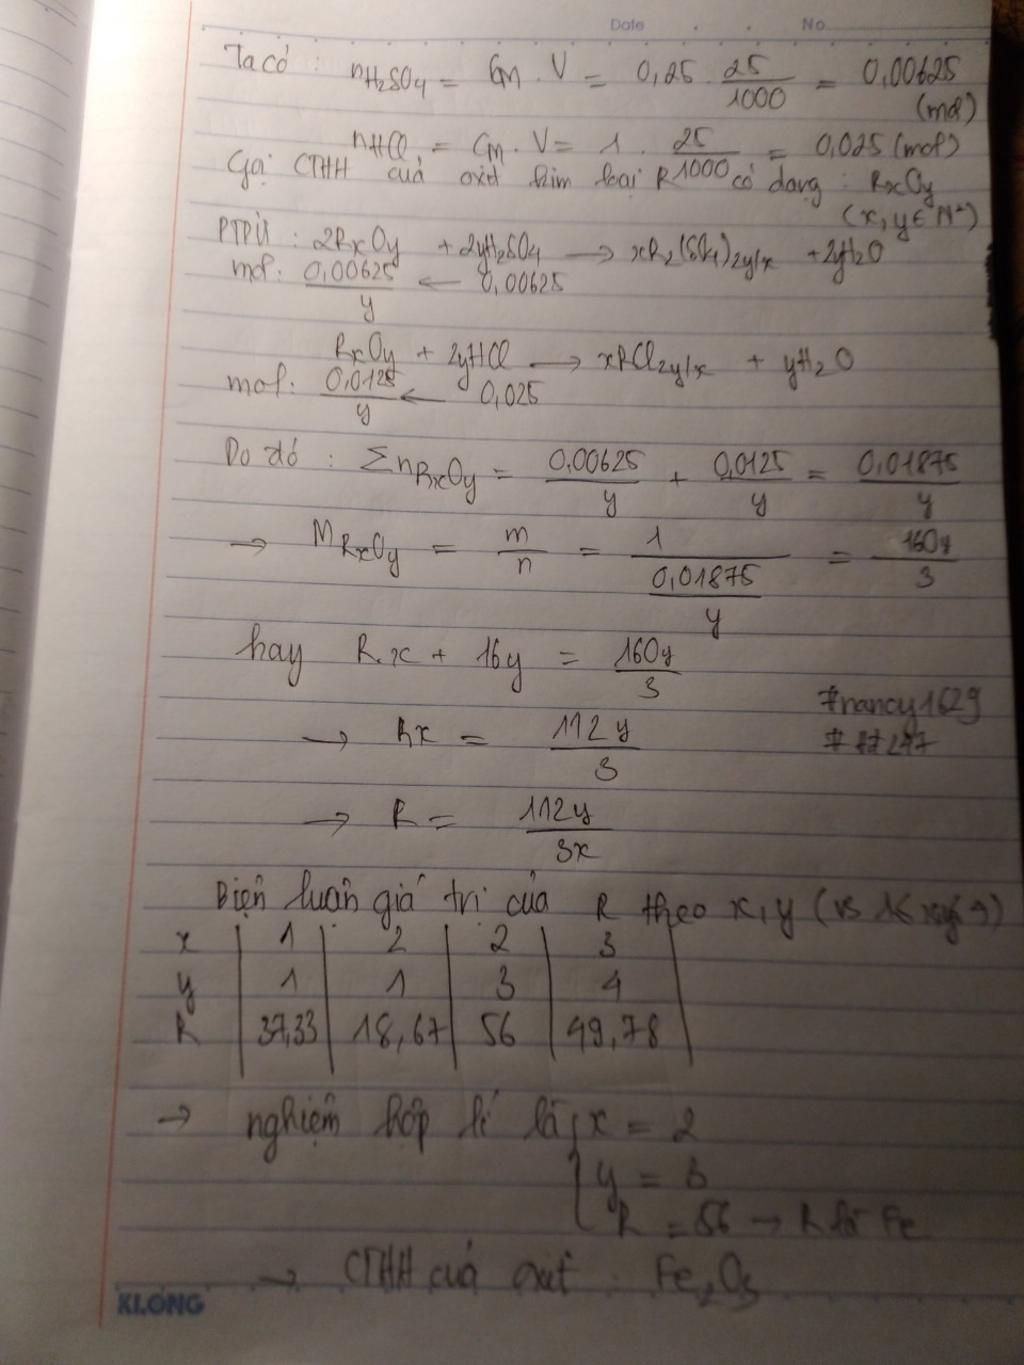 Date . . No
Ta có : nH₂SO₄ = CM . V = 0,25 . 25/1000 = 0,00625 (mol)
nHCl = CM . V = 1 . 25/1000 = 0,025 (mol)
Gọi CTHH của oxit kim loại R có dạng : RxOy
(x, y ∈ N*)
PTPƯ : 2RxOy + 2yH₂SO₄ → xR₂(SO₄)2y/x + 2yH₂O
mol: 0,00625/y ← 0,00625
RxOy + 2yHCl → xRCl2y/x + yH₂O
mol: 0,0125/y ← 0,025
Do đó : ΣnRxOy = 0,00625/y + 0,0125/y = 0,01875/y
→ MRxOy = m/n = 1/(0,01875/y) = 160y/3
hay R.x + 16y = 160y/3
#nancy1629
→ Rx = 112y/3
→ R = 112y/3x
Biện luận giá trị của R theo x, y
x | 1 | 2 | 2 | 3
y | 1 | 1 | 3 | 4
R | 37,33 | 18,67 | 56 | 49,78
→ nghiệm hợp lí là { x = 2
y = 3
R = 56 → R là Fe
→ CTHH của oxit : Fe₂O₃
KLONG